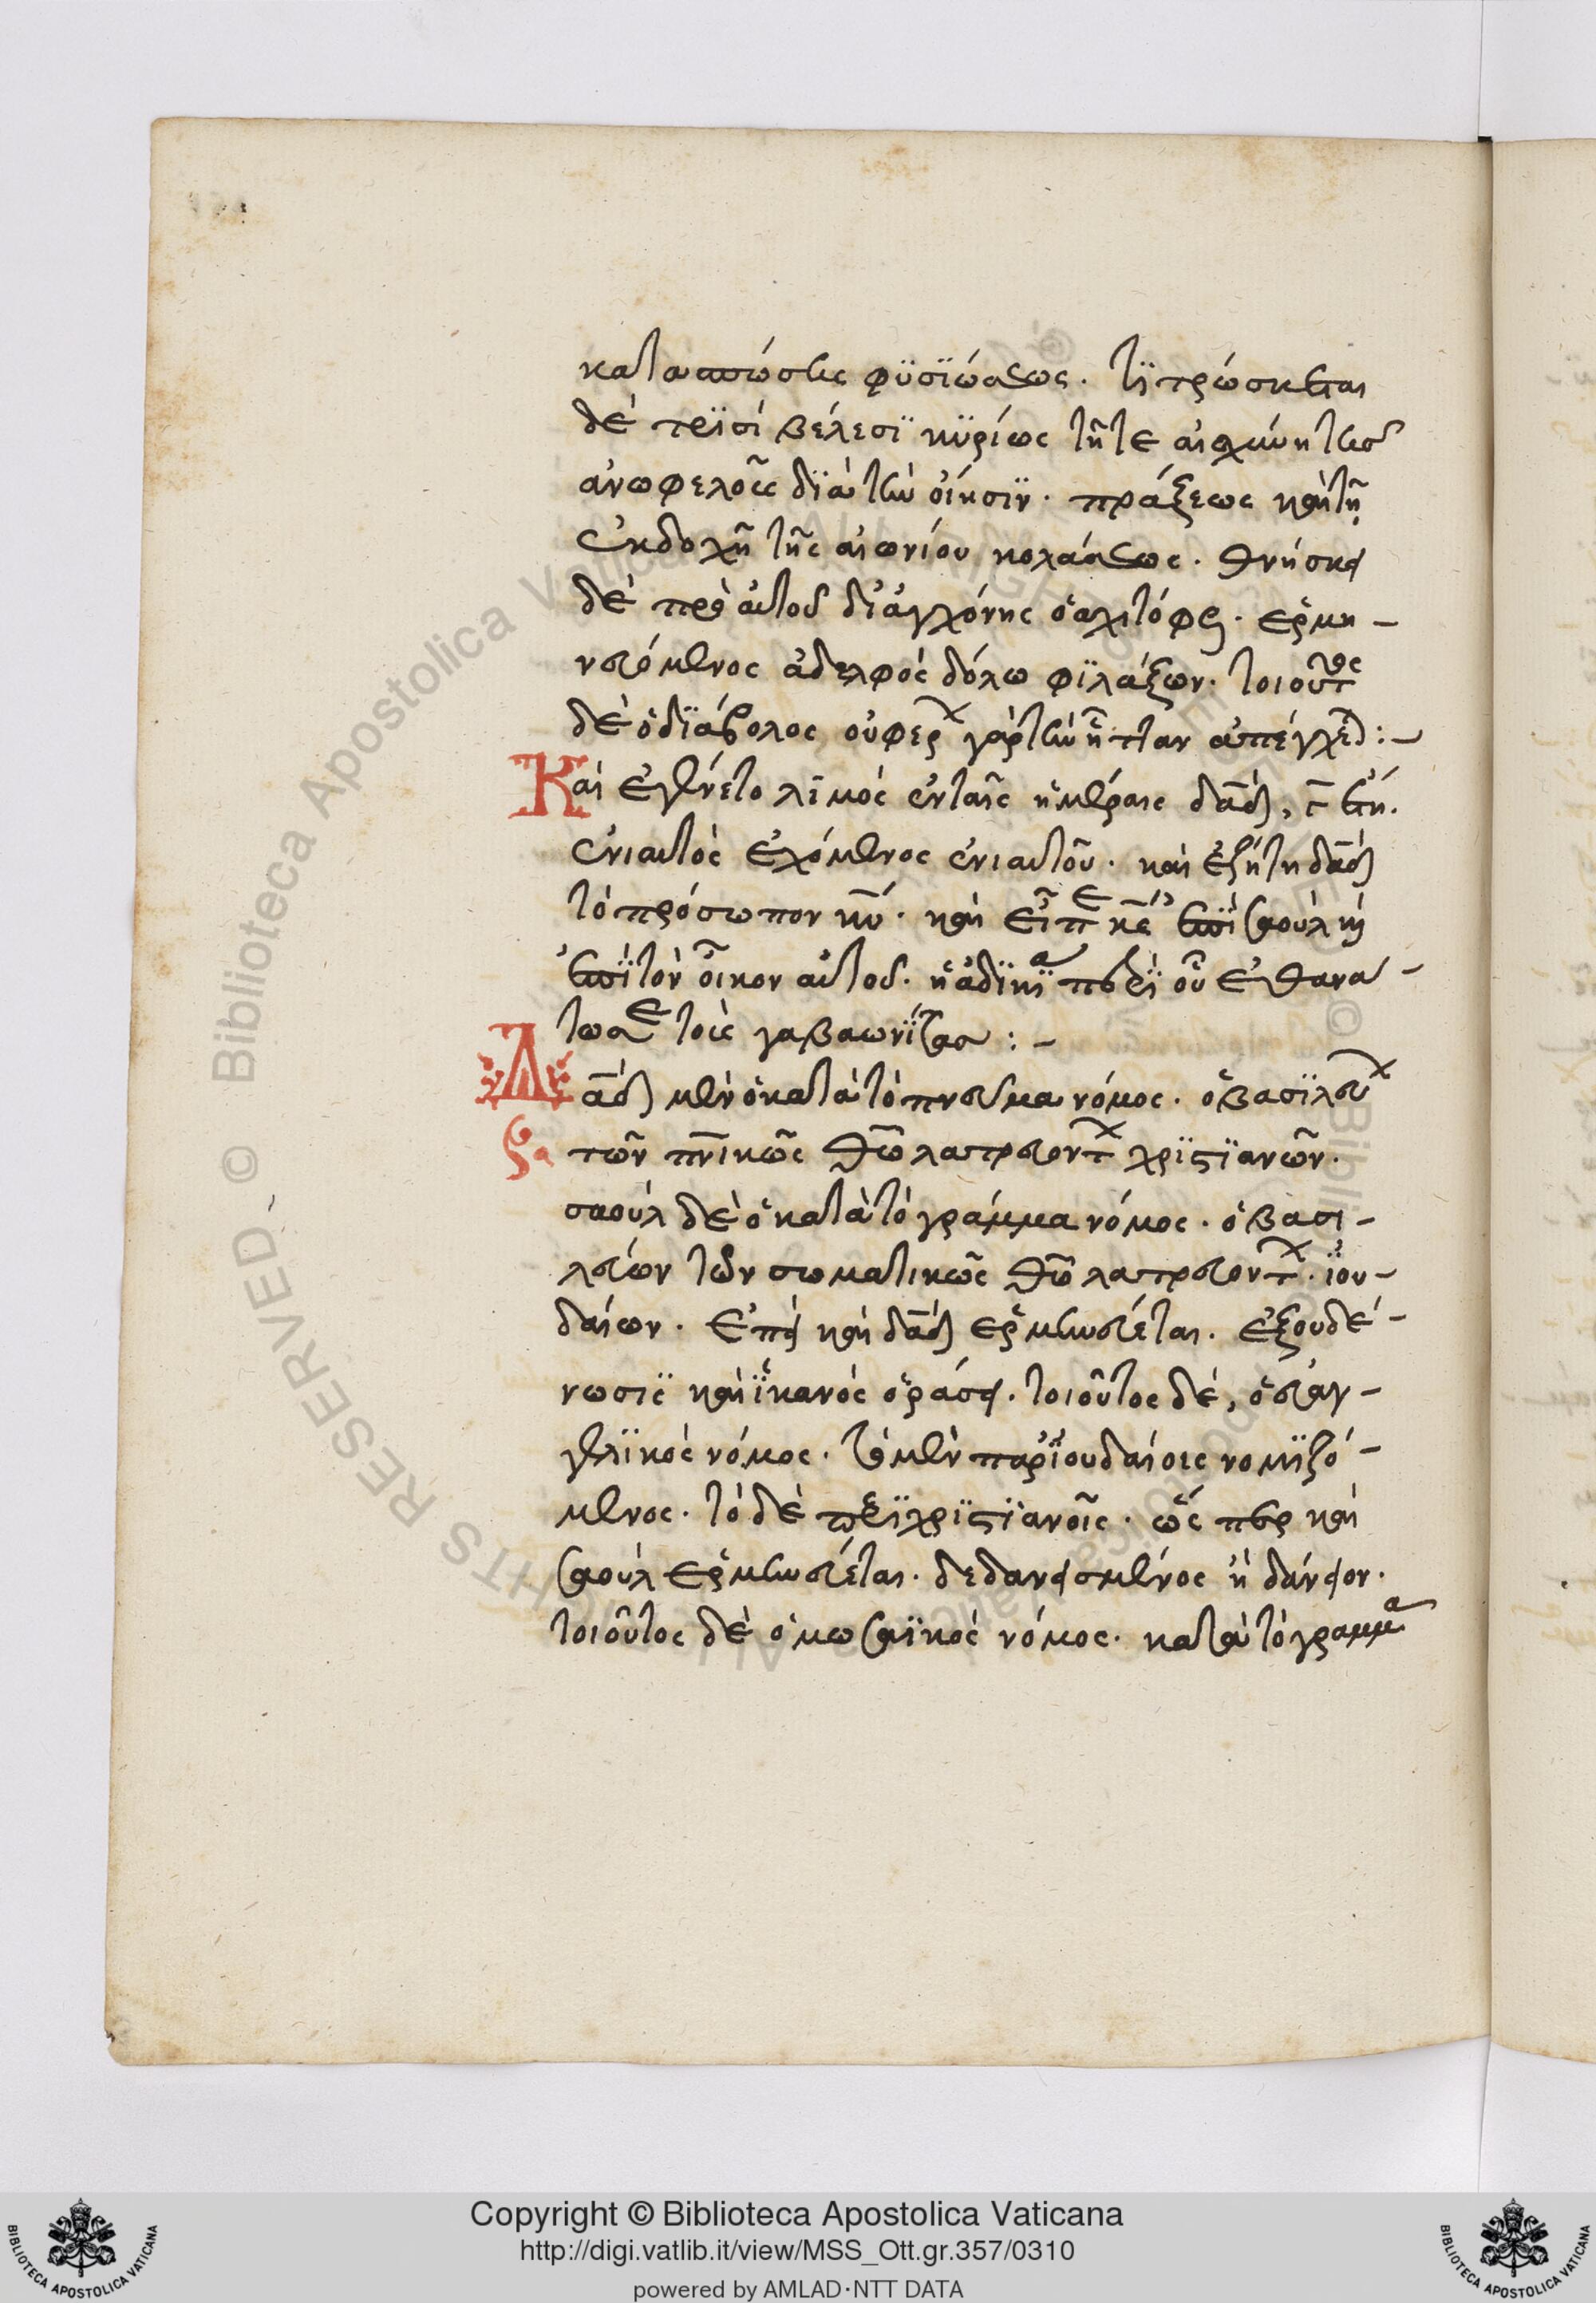 καταπτώσεις φϋσϊώσεως. τϊτρώσκεται
δὲ τρϊσὶ βέλεσϊ κϋρίως τῆτε αἰσχύνη τῆς
ἀνωφελοῦς δϊὰ τὴν οἴησϊν. πράξεως καὶ τῆ
ἐκδοχῆ τῆς αἰωνίου κολάσεως. θνήσκει
δὲ πρὸ αὐτοῦ δϊ ἀγχόνης ὁ ἀχιτόφελ. ἑρμη-
νευόμενος ἀδελφὸς δόλω φϊλάξων. τοιοῦτος
δὲ ὁ δϊάβολος οὐ φέρων γὰρ τὴν ἧτταν ἀπέγχεται:-
Καὶ ἐγένετο λιμὸς ἐν ταῖς ἡμέραις δαδ, γ ἔτη.
ἐνιαυτὸς ἐχόμενος ἐνιαυτοῦ. καὶ ἐζήτη δαδ
τὸ πρόσωπον κυ. καὶ εἶπε κς ἐπὶ σαοὺλ καὶ
ἐπὶ τὸν οἶκον αὐτοῦ. ἡ ἀδϊκϊα περὶ οὗ ἐθανά-
τωσε τοὺς γαβαωνϊτας:-
Δαδ μὲν ὁ κατὰ τὸ πνεῦμα νόμος. ὁ βασϊλεύων
ξα τῶν πνικῶς θῶ λατρευόντων χρϊστϊανῶν.
σαοὺλ δὲ ὁ κατὰ τὸ γράμμα νόμος. ὁ βασι-
λεύων τῶν σωματικῶς θῶ λατρευόντων. ἰου-
δαίων. ἐπεὶ καὶ δαδ ἑρμηνεύεται. ἐξουδέ-
νωσις καὶ ἱκανὸς ὁράσει. τοιοῦτος δέ, ὁ εὐαγ-
γελϊκὸς νόμος. τὸ μὲν παρ ἰουδαίοις νομϊζό-
μενος. τὸ δὲ περὶ χρϊστϊανοῖς. ὥς περ καὶ
σαοὺλ ἑρμηνεύεται. δεδανεισμένος ἢ δάνειον.
τοιοῦτος δὲ ὁ μωσαϊκὸς νόμος. κατὰ τὸ γράμμα
Copyright © Biblioteca Apostolica Vaticana
http://digi.vatlib.it/view/MSS_Ott.gr.357/0310
powered by AMLAD·NTT DATA